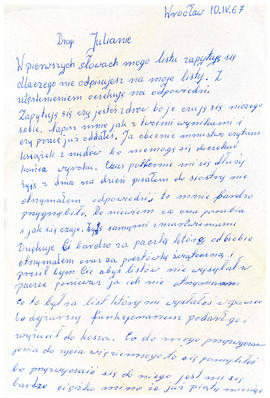 Wrocław 10.IV.67
Drogi Julianie
W pierwszych słowach mego listu zapytuję się
dlaczego nie odpisujesz na moje listy. Z
niecierpliwieniem oczekuję na odpowiedzi.
Zapytuję się czy jesteś zdrów bo ja czuję się niczego
sobie. Napisz mnie jak z twoimi wynikami i
czy pracę już oddałeś. Ja obecnie mnóstwo czytam
książek z nudów bo niemogę się doczekać
końca wyroku. Czas potwornie mi się dłuży
żyję z dnia na dzień pisałem do siostry nie
otrzymałem odpowiedzi, to mnie bardzo
przygnębiło, bo niewiem co ona porabia
i jak się czuje. Żyję samymi zmartwieniami
Dziękuję Ci bardzo za paczkę którą od Ciebie
otrzymałem oraz za pocztówkę świąteczną i
prosił bym Cię abyś listów nie wysyłał w
paczce ponieważ ja ich nie otrzymam
co to był za list który mi wysłałeś w paczce
bo dyżurny funkcjonariusz podarł go i
wyrzucił do kosza. Co do mego przyzwycza-
jenia do życia więziennego to się pomyliłeś
bo przyzwyczaić się do niego jest mi się
bardzo ciężko mimo że już piąty miesiąc